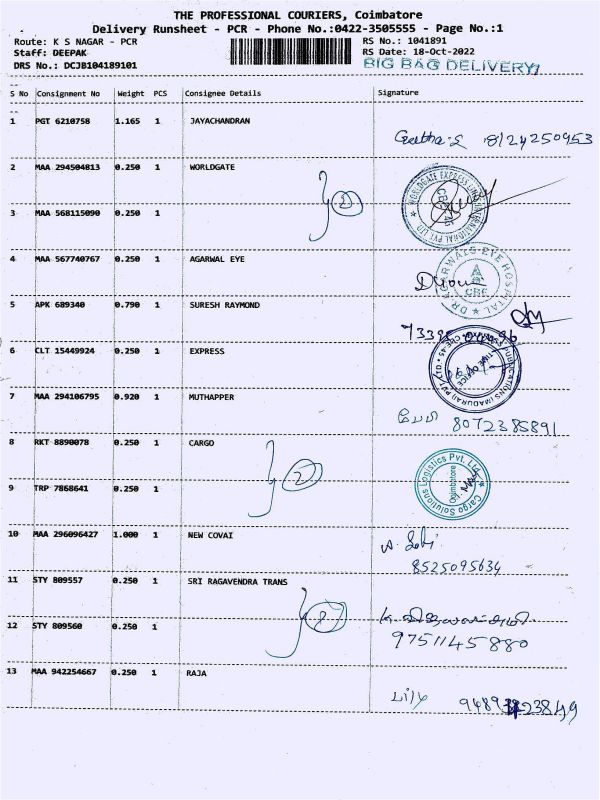 THE PROFESSIONAL COURIERS, Coimbatore
Delivery Runsheet - PCR - Phone No.:0422-3505555 - Page No.:1
Route: K S NAGAR - PCR RS No.: 1041891
Staff: DEEPAK RS Date: 18-Oct-2022
DRS No.: DCJB104189101 BIG BAG DELIVERY
S No Consignment No Weight PCS Consignee Details Signature
1 PGT 6210758 1.165 1 JAYACHANDRAN
Geetha.S 8124250953
2 MAA 294504813 0.250 1 WORLDGATE
2
WORLDGATE EXPRESS LINES INTERNATIONAL PVT LTD
3 MAA 568115090 0.250 1
4 MAA 567740767 0.250 1 AGARWAL EYE
DR.AGARWALS EYE HOSPITAL
CBE
5 APK 689340 0.790 1 SURESH RAYMOND
6 CLT 15449924 0.250 1 EXPRESS
7 MAA 294106795 0.920 1 MUTHAPPER
பேபி 8072385891
8 RKT 8890078 0.250 1 CARGO
2
Cargo Solutions Logistics Pvt. Ltd.
Coimbatore
9 TRP 7868641 0.250 1
10 MAA 296096427 1.000 1 NEW COVAI
8525095634
11 STY 809557 0.250 1 SRI RAGAVENDRA TRANS
2
12 STY 809560 0.250 1
9751145880
13 MAA 942254667 0.250 1 RAJA
Lily